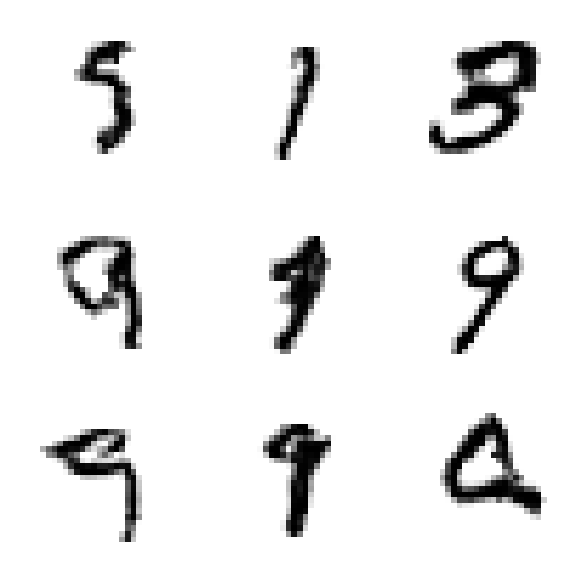 5 1 3
9 9 9
9 9 2